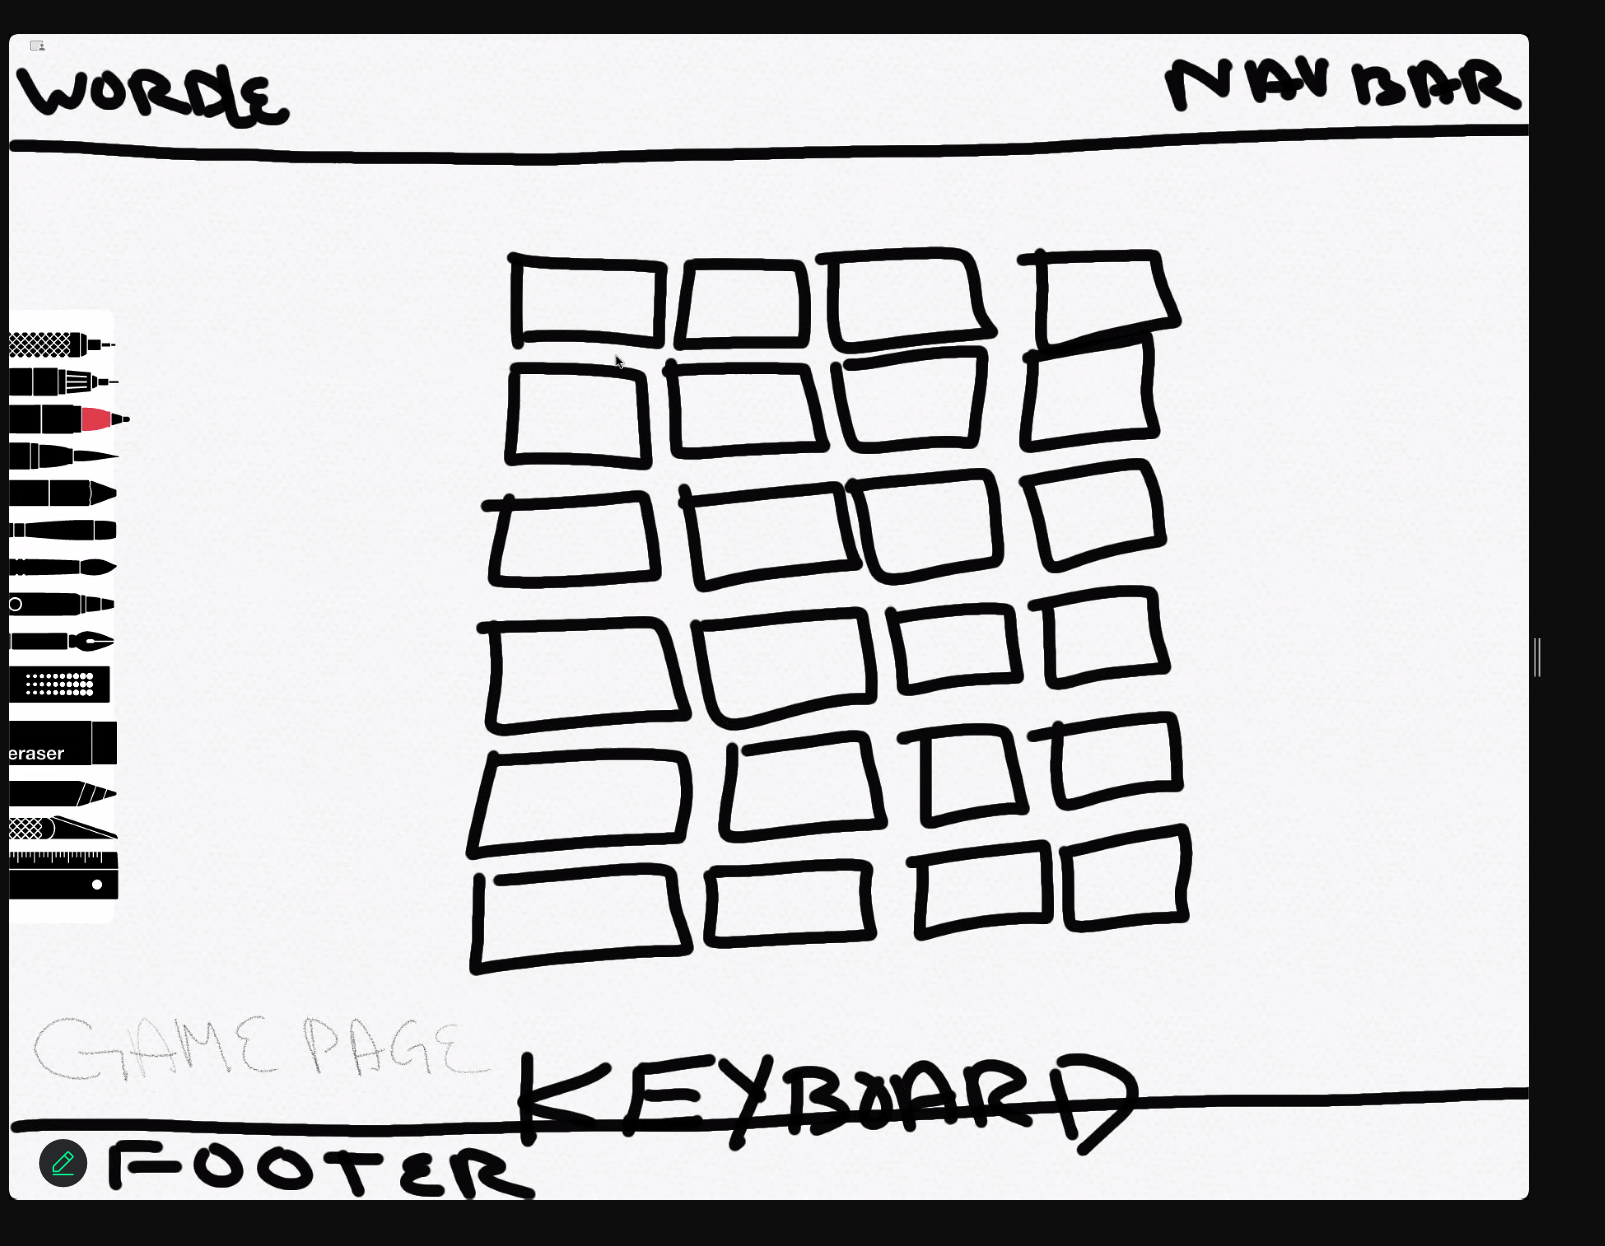 WORDLE
NAV BAR
eraser
GAME PAGE
KEYBOARD
FOOTER